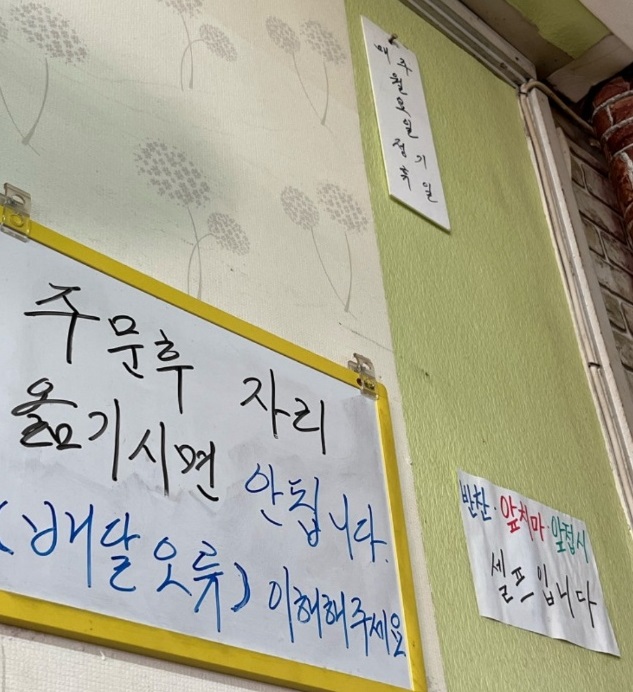 매주
월요일
정기
휴일
주문후 자리
옮기시면 안됩니다.
(배달오류) 이해해주세요
반찬·앞치마·앞접시
셀프입니다